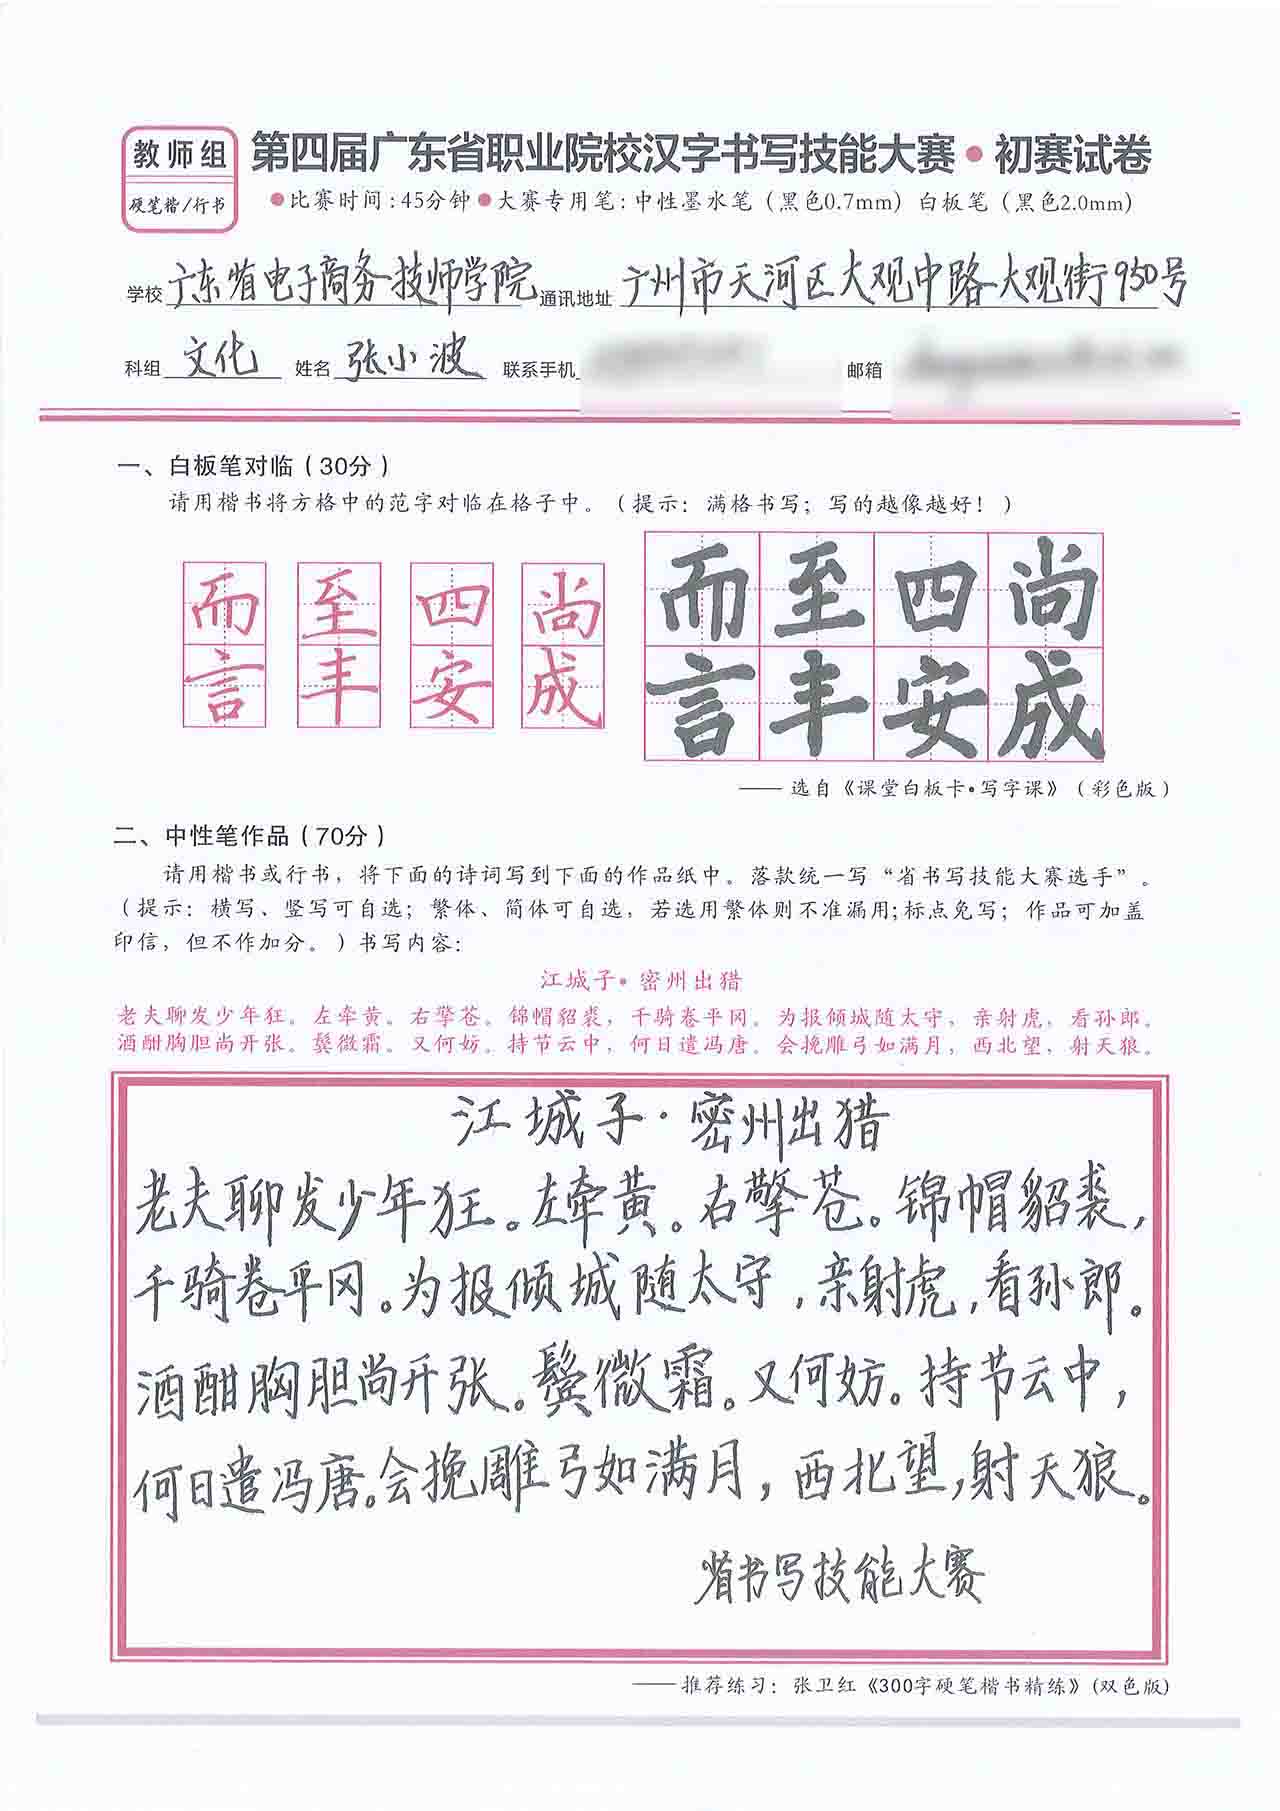 教师组
硬笔楷/行书
第四届广东省职业院校汉字书写技能大赛•初赛试卷
●比赛时间:45分钟●大赛专用笔:中性墨水笔（黑色0.7mm）白板笔（黑色2.0mm）
学校 广东省电子商务技师学院 通讯地址 广州市天河区大观中路大观街950号
科组 文化 姓名 张小波 联系手机 邮箱
一、白板笔对临（30分）
请用楷书将方格中的范字对临在格子中。（提示：满格书写；写的越像越好！）
而 至 四 尚 而 至 四 尚
言 丰 安 成 言 丰 安 成
——选自《课堂白板卡•写字课》（彩色版）
二、中性笔作品（70分）
请用楷书或行书，将下面的诗词写到下面的作品纸中。落款统一写“省书写技能大赛选手”。
（提示：横写、竖写可自选；繁体、简体可自选，若选用繁体则不准漏用;标点免写；作品可加盖
印信，但不作加分。）书写内容：
江城子•密州出猎
老夫聊发少年狂。左牵黄。右擎苍。锦帽貂裘，千骑卷平冈。为报倾城随太守，亲射虎，看孙郎。
酒酣胸胆尚开张。鬓微霜。又何妨。持节云中，何日遣冯唐。会挽雕弓如满月，西北望，射天狼。
江城子·密州出猎
老夫聊发少年狂。左牵黄。右擎苍。锦帽貂裘，
千骑卷平冈。为报倾城随太守，亲射虎，看孙郎。
酒酣胸胆尚开张。鬓微霜。又何妨。持节云中，
何日遣冯唐。会挽雕弓如满月，西北望，射天狼。
省书写技能大赛
——推荐练习：张卫红《300字硬笔楷书精练》(双色版)